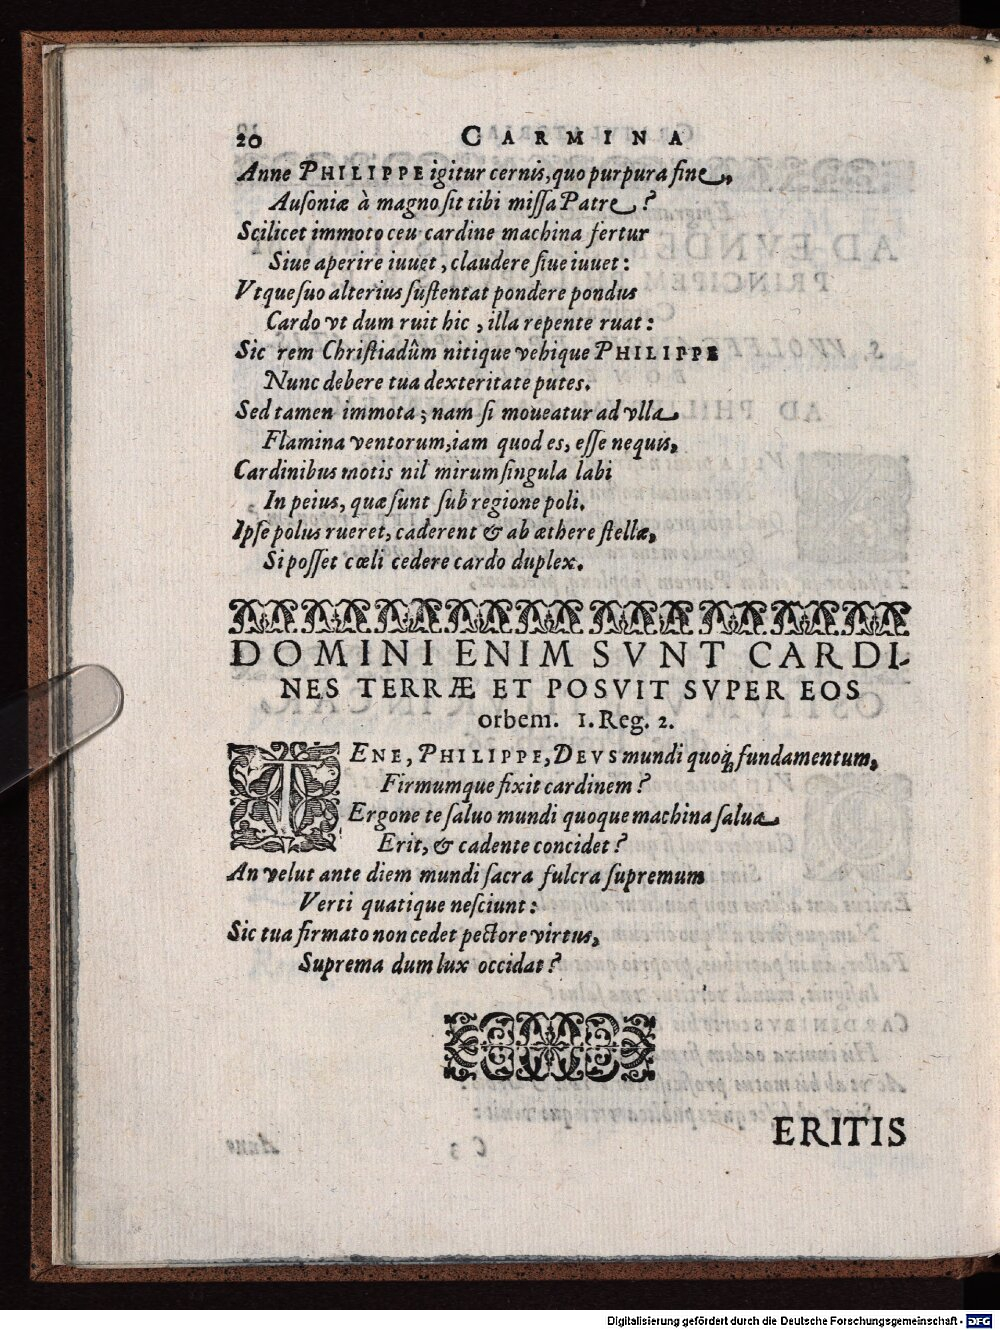 20 CARMINA
Anne PHILIPPE igitur cernis, quo purpura fine,
Ausoniæ à magno sit tibi missa Patre?
Scilicet immoto ceu cardine machina fertur
Siue aperire iuuet, claudere siue iuuet:
Vtque suo alterius sustentat pondere pondus
Cardo vt dum ruit hic, illa repente ruat:
Sic rem Christiadûm nitique vehique PHILIPPE
Nunc debere tua dexteritate putes.
Sed tamen immota; nam si moueatur ad vlla
Flamina ventorum, iam quod es, esse nequis,
Cardinibus motis nil mirum singula labi
In peius, quæ sunt sub regione poli.
Ipse polus rueret, caderent & ab æthere stellæ,
Si posset cœli cedere cardo duplex.
DOMINI ENIM SVNT CARDI-
NES TERRÆ ET POSVIT SVPER EOS
orbem. 1. Reg. 2.
TENE, PHILIPPE, DEVS mundi quoq; fundamentum,
Firmumque fixit cardinem?
Ergone te saluo mundi quoque machina salua
Erit, & cadente concidet?
An velut ante diem mundi sacra fulcra supremum
Verti quatique nesciunt:
Sic tua firmato non cedet pectore virtus,
Suprema dum lux occidat?
ERITIS
Digitalisierung gefördert durch die Deutsche Forschungsgemeinschaft - DFG